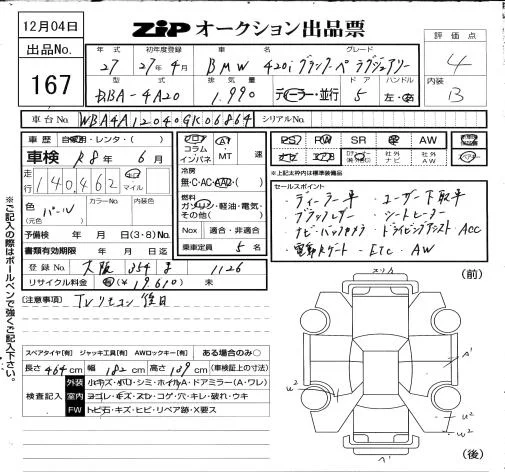 12月04日
ZIP オークション出品票
出品No.
167
評価点
4
内装
B
年式 初年度登録 車名 グレード
27 27年4月 BMW 420i グランクーペ ラグジュアリー
型式 排気量 ドア ハンドル
DBA-4A20 1.990 ディーラー・並行 5 左・右
車台No. WBA4A12040GK06864 シリアルNo.
車歴 自家用・レンタ・( )
車検 R8年 6月
走行 140,462 km マイル
色 (元色) パール カラーNo. 内装色
予備検 年 月 日(3・8)No.
書類有効期限 年 月 日迄
登録No. 大阪 354 1126
リサイクル料金 (¥19610) 未
フロア コラム インパネ
AT MT 速
冷房
無・C・AC・AAC・( )
燃料
ガソリン・軽油・電気・その他( )
Nox 適合・非適合
乗車定員 5名
PS PW SR AW
ナビ エアB 社外ナビ 社外AW
※上記太枠内は標準装備品
セールスポイント
・ディーラー車 ・ユーザー下取車
・ブラックレザー ・シートヒーター
・ナビ・バックカメラ ・ドライビングアシスト ACC
・電動Rゲート ・ETC ・AW
[注意事項] TVリモコン後日
※ご記入の際はボールペンで強くご記入下さい。
スペアタイヤ[有] ジャッキ工具[有] AWロックキー[有] ある場合のみ○
長さ 464cm 幅 182cm 高さ 139cm (車検証上の寸法)
検査記入
外装 小キズ・小凹・シミ・ホイルA・ドアミラー(A・ワレ)
室内 ヨゴレ・キズ・スレ・コゲ・穴・キレ・破れ・ウキ
FW トビ石・キズ・ヒビ・リペア跡・X要ス
スリA
(前)
A'
U2
U2
A'
(後)